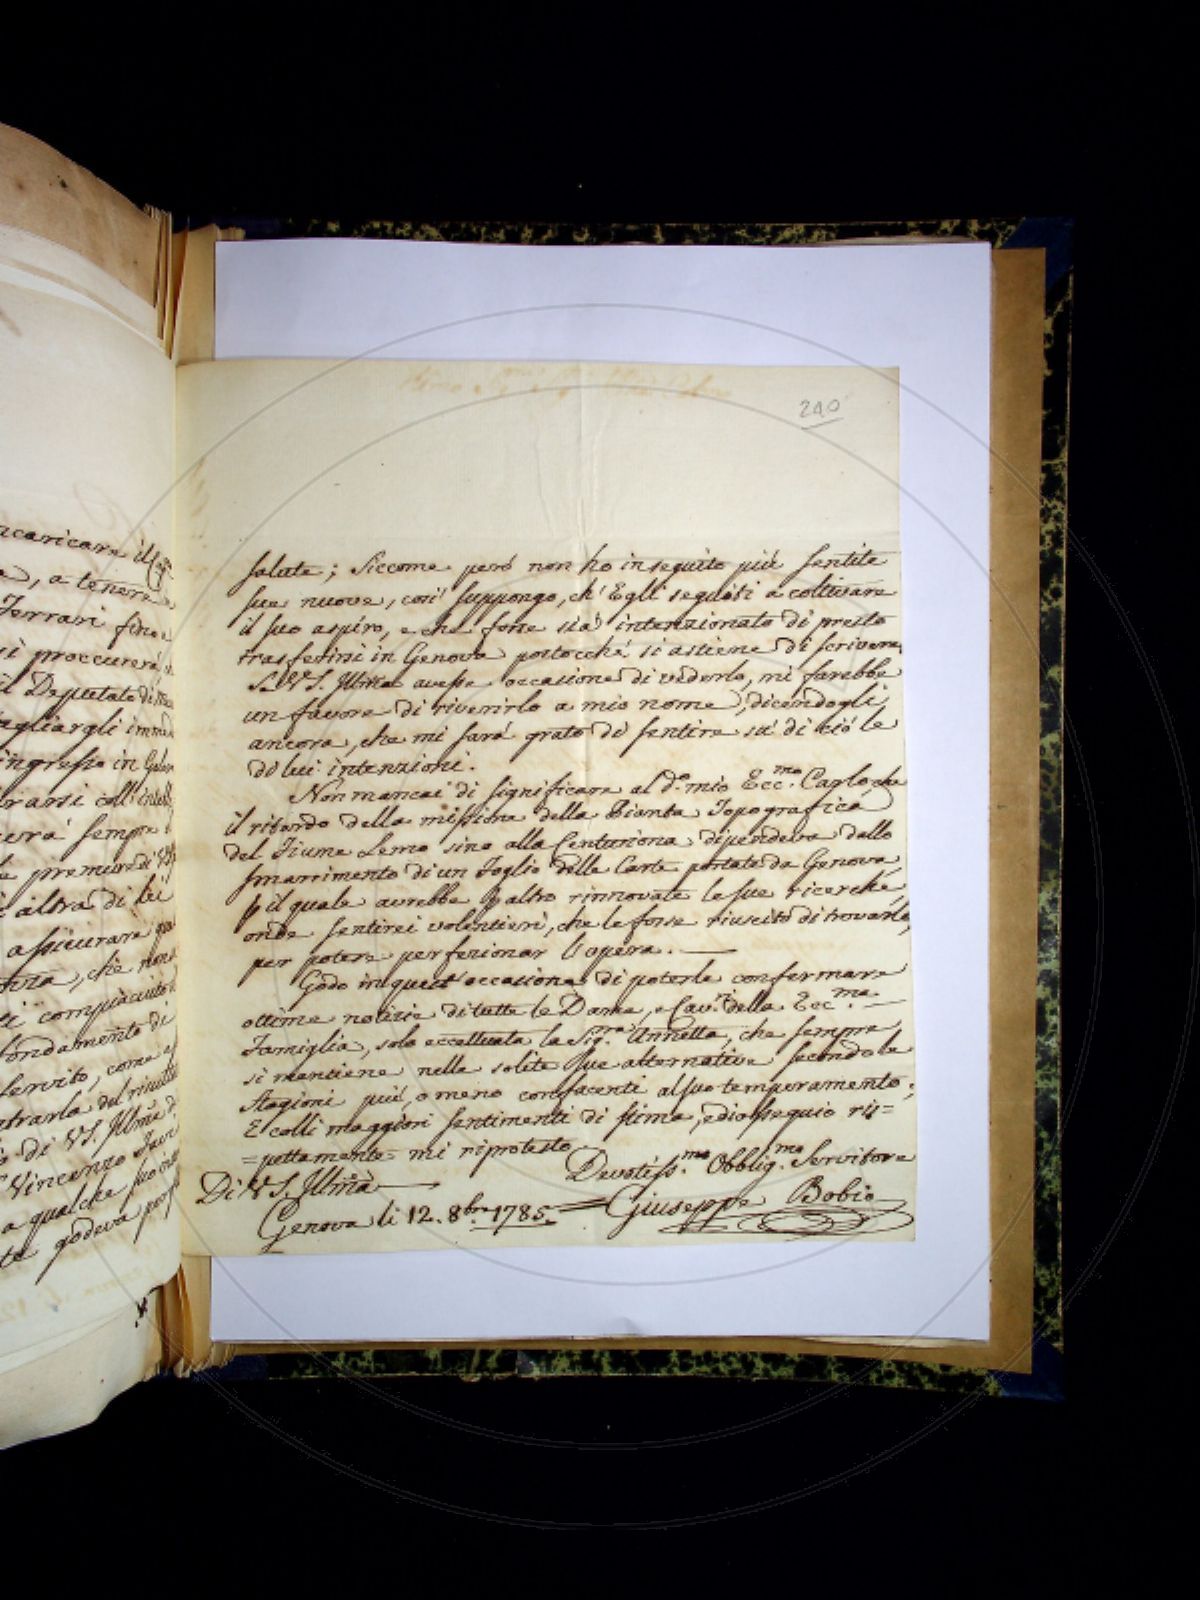 240
salute; siccome peró non ho in seguito piú sentite
sue nuove, cosí suppongo, ch'Egli seguiti a coltivare
il suo aspiro, e che forse sia intenzionato di presto
trasferirsi in Genova postocché si astiene di scrivere,
Se VS. Illma avesse occasione di vederlo, mi farebbe
un favore di riverirlo a mio nome, dicendogli
ancora, che mi sará grato di sentire sú di ció le
di lui intenzioni.
Non mancai di significare al do. mio Ecc.mo Carlo che
il ritardo della missione della Pianta Topografica
del Fiume Lemo sino alla Centuriona dipendeva dallo
smarrimento di un Foglio delle Carte portate da Genova,
p il quale avrebbe p altro rinnovate le sue ricerche,
onde sentirei volentieri, che le fosse riuscito di trovarlo,
per potere perfezionar l'opera.
Godo in quest'occasione di poterle confermare
ottime notizie di tutte le Dame, e Cav.ri della Ecc.ma
Famiglia, solo eccettuata la Sig.ra Annetta, che sempre
si mantiene nelle solite sue alternative secondo le
Stagioni piú, o meno confacenti al suo temperamento;
E colli maggiori sentimenti di stima, ed ossequio ris=
=pettamente mi riprotesto
Di VS. Illma
Devotiss.mo Obblig.mo Servitore
Genova li 12. 8bre 1785. = Giuseppe Bobio
acaricare il
a, a tenere
Ferrari fino
si proccurerá
il Deputato di
agliargli imme
ingresso in
rarsi coll'intell
verá sempre
le premure di
é altra di lui
assicurare
che non
ti compiaciuto
fondamento di
servito, come
di VS. Illma
Vincenzo
a qualche
te godeva